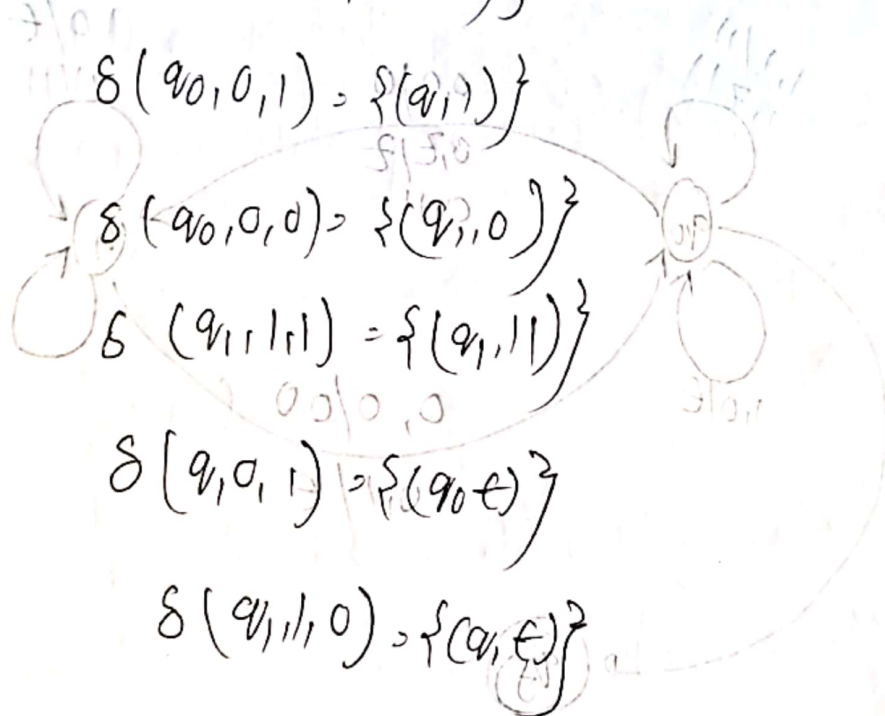 δ(q0,0,1) = {(q,1)}
δ(q0,0,0) = {(q1,0)}
δ(q1,1,1) = {(q1,11)}
δ(q,0,1) = {(q0 ε)}
δ(q1,1,0) = {(q, ε)}